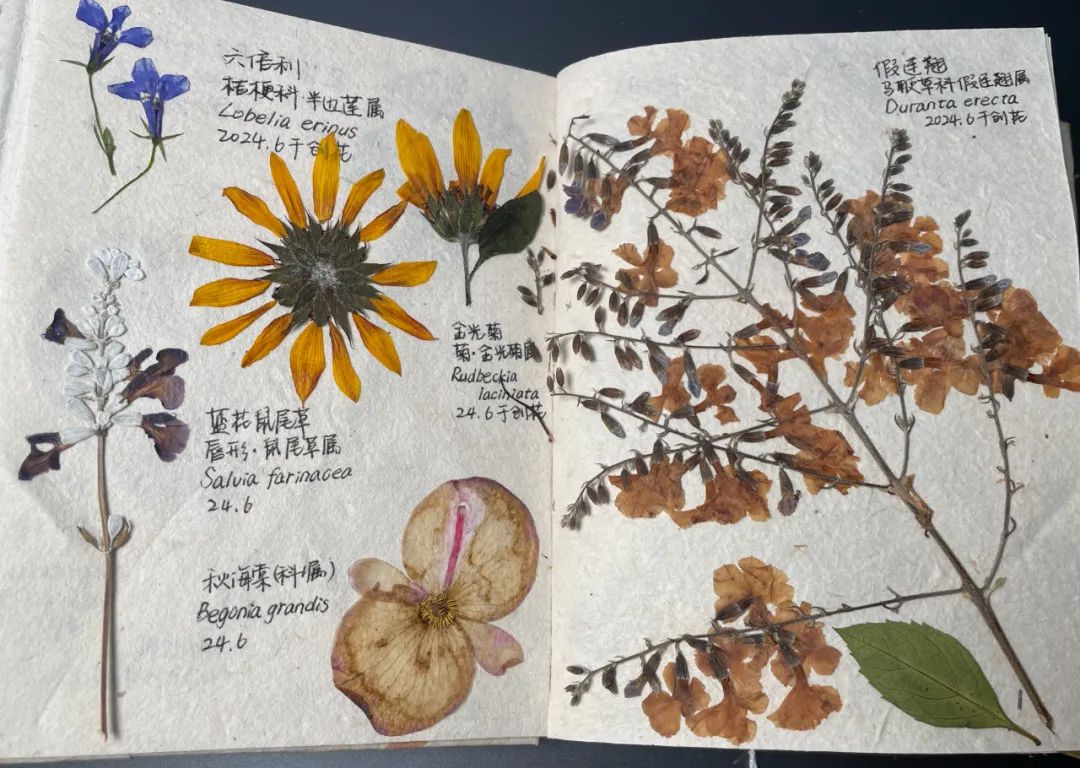 六倍利
桔梗科·半边莲属
Lobelia erinus
2024.6于创花
金光菊
菊·金光菊属
Rudbeckia
laciniata
24.6于创花
蓝花鼠尾草
唇形·鼠尾草属
Salvia farinacea
24.6
秋海棠(科、属)
Begonia grandis
24.6
假连翘
马鞭草科假连翘属
Duranta erecta
2024.6于创花